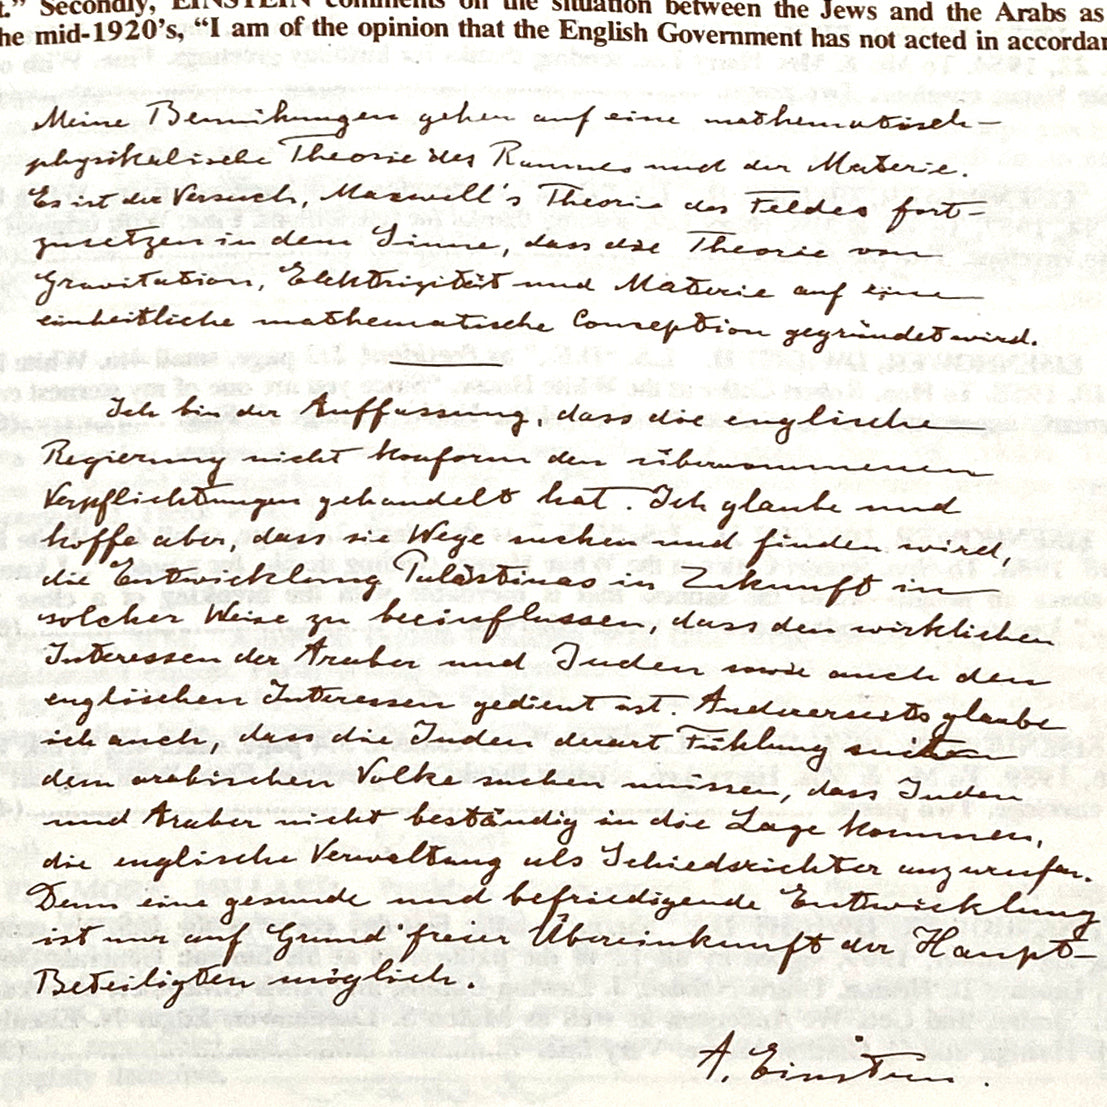 t.” Secondly, EINSTEIN comments on the situation between the Jews and the Arabs as
he mid-1920’s, “I am of the opinion that the English Government has not acted in accordan
Meine Bemühungen gehen auf eine mathematisch-
physikalische Theorie des Raumes und der Materie.
Es ist der Versuch, Maxwell's Theorie des Feldes fort-
zusetzen in dem Sinne, dass die Theorie von
Gravitation, Elektrizität und Materie auf eine
einheitliche mathematische Conception gegründet wird.
Ich bin der Auffassung, dass die englische
Regierung nicht konform den übernommenen
Verpflichtungen gehandelt hat. Ich glaube und
hoffe aber, dass sie Wege suchen und finden wird,
die Entwicklung Palästinas in Zukunft in
solcher Weise zu beeinflussen, dass den wirklichen
Interessen der Araber und Juden sowie auch den
englischen Interessen gedient ist. Andererseits glaube
ich auch, dass die Juden derart Fühlung mit
dem arabischen Volke suchen müssen, dass Juden
und Araber nicht beständig in die Lage kommen,
die englische Verwaltung als Schiedsrichter anzurufen.
Denn eine gesunde und befriedigende Entwicklung
ist nur auf Grund freier Übereinkunft der Haupt-
Beteiligten möglich.
A. Einstein.